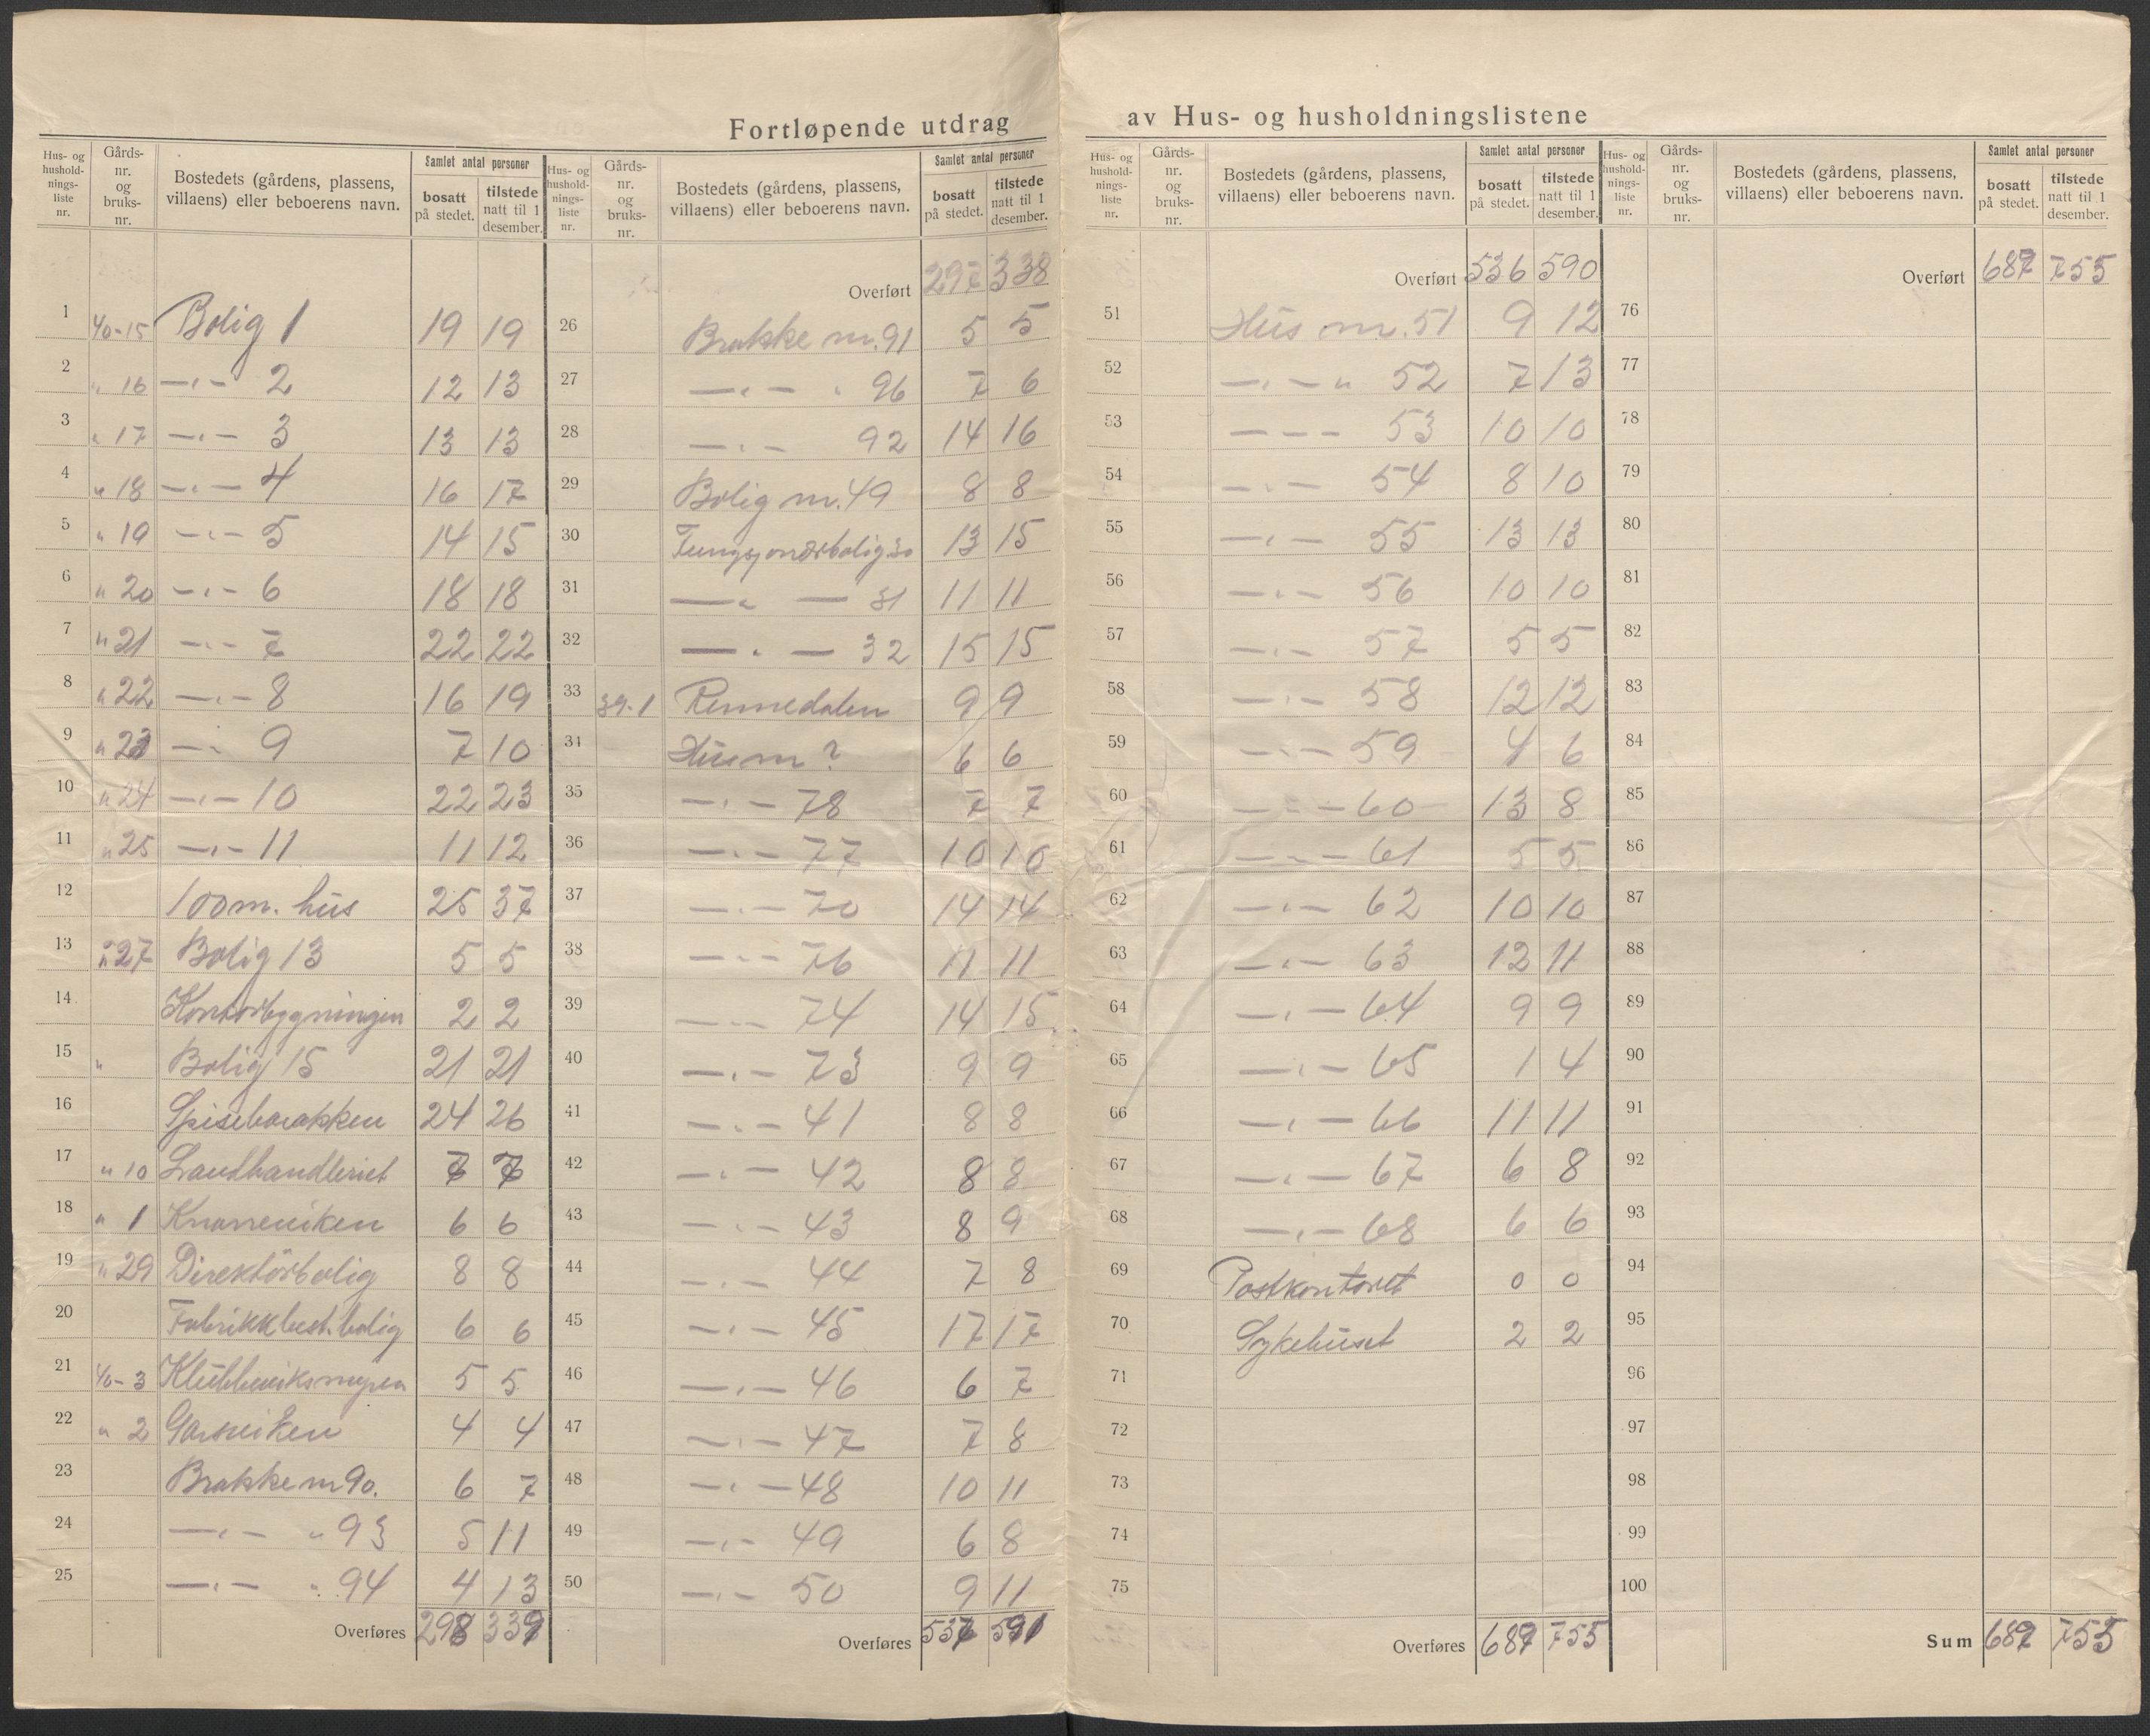 Fortløpende utdrag av Hus- og husholdningslistene
Hus- og hushold-nings-liste nr. | Gårds-nr. og bruks-nr. | Bostedets (gårdens, plassens, villaens) eller beboerens navn. | Samlet antal personer | bosatt på stedet. | tilstede natt til 1 desember.
1 40-15 Bolig 1 19 19
2 " 16 —"— 2 12 13
3 " 17 —"— 3 13 13
4 " 18 —"— 4 16 17
5 " 19 —"— 5 14 15
6 " 20 —"— 6 18 18
7 " 21 —"— 7 22 22
8 " 22 —"— 8 16 19
9 " 23 —"— 9 7 10
10 " 24 —"— 10 22 23
11 " 25 —"— 11 11 12
12 100 m. hus 25 37
13 " 27 Bolig 13 5 5
14 Kontorbygningen 2 2
15 " Bolig 15 21 21
16 Spisebarakken 24 26
17 " 10 Landhandleriet
18 " 1 Knarreviken 6 6
19 " 29 Direktörbolig 8 8
20 Fabrikkbest.bolig 6 6
21 40-3 Klubbeviksmyren 5 5
22 " 2 Garnviken 4 4
23 Brakke nr 90. 6 7
24 —"— " 93 5 11
25 —"— " 94 4 13
Overføres 298 339
Hus- og hushold-nings-liste nr. | Gårds-nr. og bruks-nr. | Bostedets (gårdens, plassens, villaens) eller beboerens navn. | Samlet antal personer | bosatt på stedet. | tilstede natt til 1 desember.
Overført 297 338
26 Brakke nr. 91 5 5
27 —"— " 96 7 6
28 —"— 92 14 16
29 Bolig nr. 49 8 8
30 Fungsjonærbolig 30 13 15
31 —"— 31 11 11
32 —"— 32 15 15
33 39-1 Rennedalen 9 9
34 Hus nr ? 6 6
35 —"— 78 7 7
36 —"— 77 10 10
37 —"— 70 14 14
38 —"— 76 11 11
39 —"— 74 14 15
40 —"— 73 9 9
41 —"— 41 8 8
42 —"— 42 8 8
43 —"— 43 8 9
44 —"— 44 7 8
45 —"— 45 17 17
46 —"— 46 6 7
47 —"— 47 7 8
48 —"— 48 10 11
49 —"— 49 6 8
50 —"— 50 9 11
Overføres
Hus- og hushold-nings-liste nr. | Gårds-nr. og bruks-nr. | Bostedets (gårdens, plassens, villaens) eller beboerens navn. | Samlet antal personer | bosatt på stedet. | tilstede natt til 1 desember.
Overført 536 590
51 Hus nr. 51 9 12
52 —"— " 52 7 13
53 — — — 53 10 10
54 —"— 54 8 10
55 —"— 55 13 13
56 —"— 56 10 10
57 —"— 57 5 5
58 —"— 58 12 12
59 —"— 59 4 6
60 —"— 60 13 8
61 —"— 61 5 5
62 —"— 62 10 10
63 —"— 63 12 11
64 —"— 64 9 9
65 —"— 65 1 4
66 —"— 66 11 11
67 —"— 67 6 8
68 —"— 68 6 6
69 Postkontoret 0 0
70 Sykehuset 2 2
71
72
73
74
75
Overføres 687 755
Hus- og hushold-nings-liste nr. | Gårds-nr. og bruks-nr. | Bostedets (gårdens, plassens, villaens) eller beboerens navn. | Samlet antal personer | bosatt på stedet. | tilstede natt til 1 desember.
Overført 687 755
76
77
78
79
80
81
82
83
84
85
86
87
88
89
90
91
92
93
94
95
96
97
98
99
100
Sum 687 755